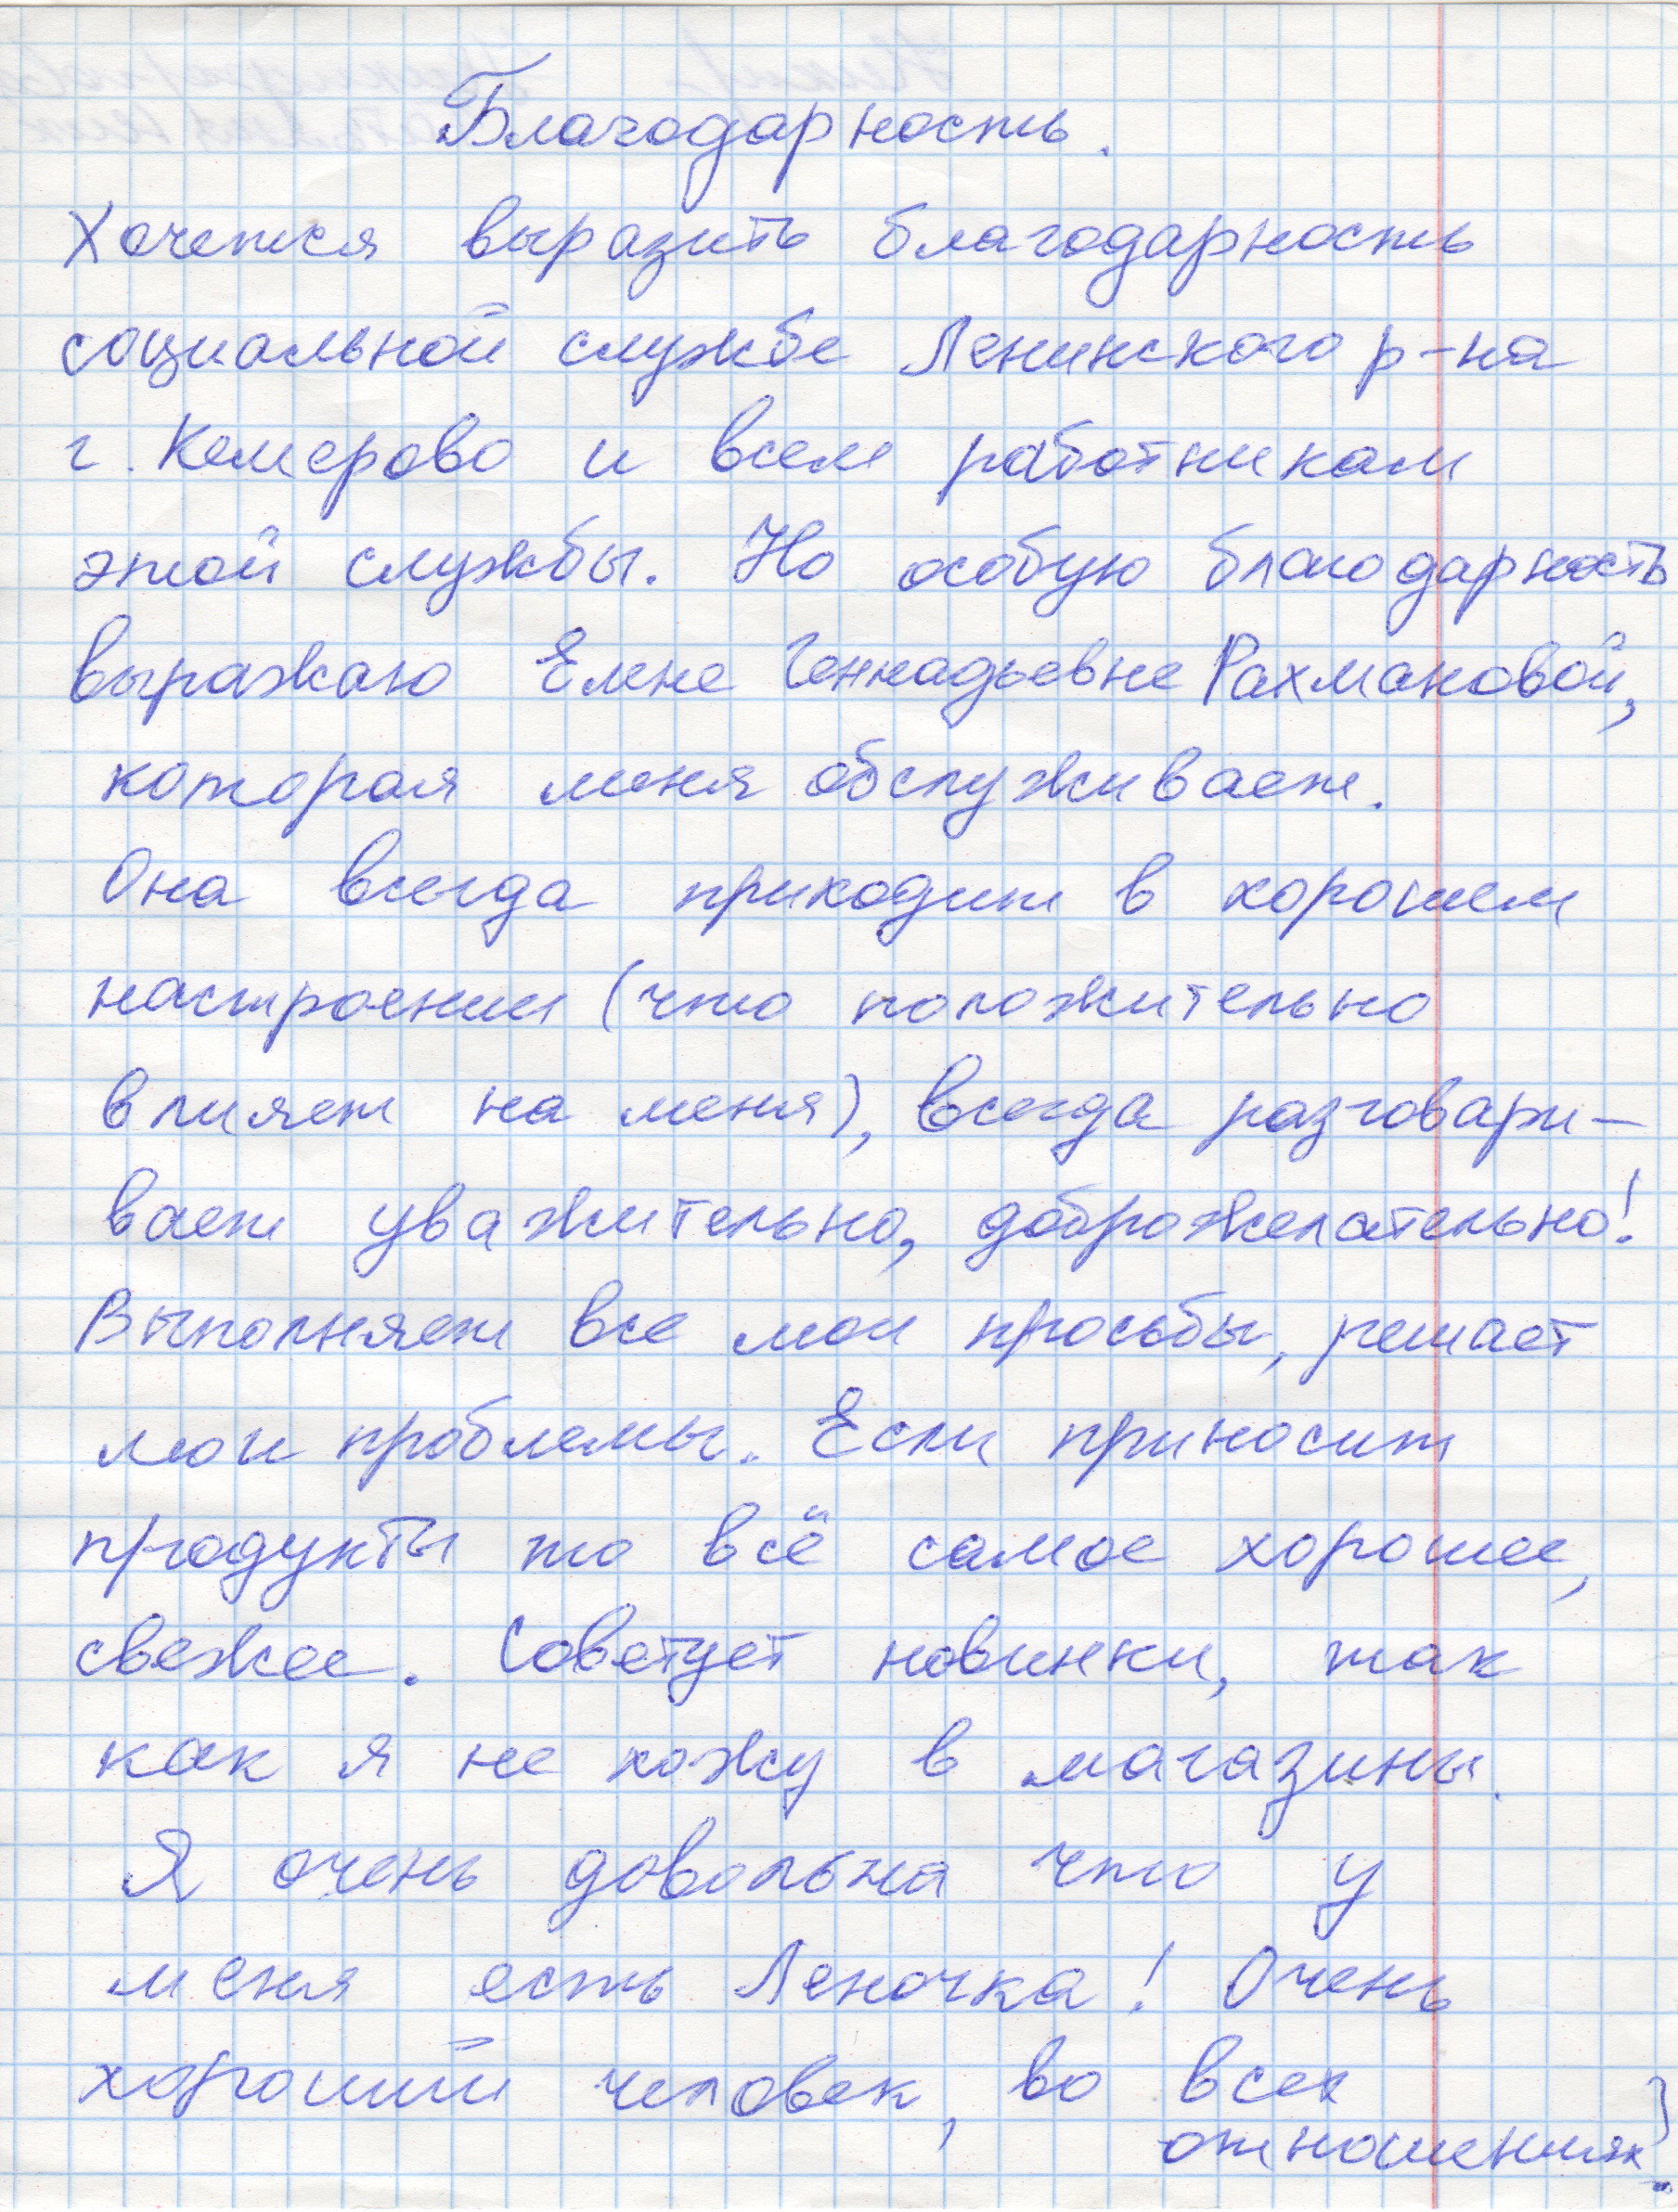 Благодарность.
Хочется выразить благодарность
социальной службе Ленинского р-на
г. Кемерово и всем работникам
этой службы. Но особую благодарность
выражаю Елене Геннадьевне Рахмановой,
которая меня обслуживает.
Она всегда приходит в хорошем
настроении (что положительно
влияет на меня), всегда разговари-
вает уважительно, доброжелательно!
Выполняет все мои просьбы, решает
мои проблемы. Если приносит
продукты то всё самое хорошее,
свежее. Советует новинки, так
как я не хожу в магазины.
Я очень довольна что у
меня есть Леночка! Очень
хороший человек, во всех
отношениях.